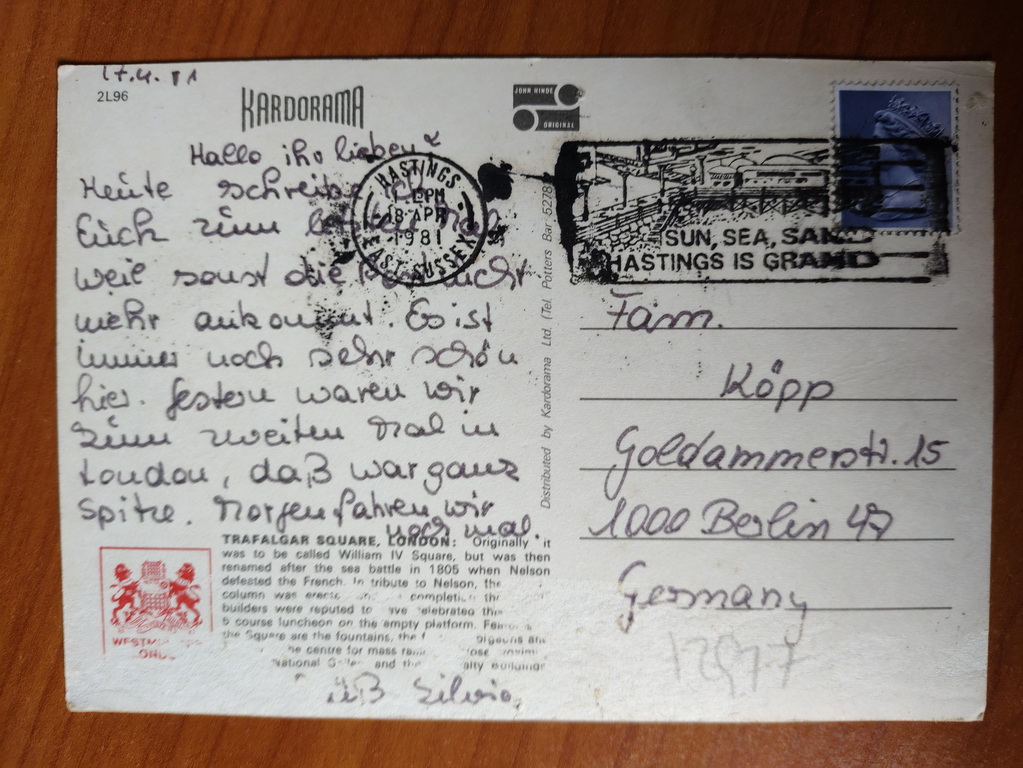 17.4.81
2L96
KARDORAMA
JOHN HINDE
Hallo ihr lieben
Heute schreibe ich
Euch zum letzten Mal
weil sonst die Post nicht
mehr ankommt. Es ist
immer noch sehr schön
hier. Gestern waren wir
zum zweiten Mal in
London, daß war ganz
Spitze. Morgen fahren wir
noch mal.
TRAFALGAR SQUARE, LONDON: Originally it
was to be called William IV Square, but was then
renamed after the sea battle in 1805 when Nelson
defeated the French. In tribute to Nelson, the
column was completion the
builders were reputed to celebrated
6 course luncheon on the empty platform.
the Square are the fountains, the
centre for mass
National and the
Silvia
HASTINGS
PM
18 APR
1981
EAST SUSSEX
SUN, SEA, SAND
HASTINGS IS GRAND
Distributed by Kardorama Ltd. (Tel. Potters Bar 5278
Fam.
Köpp
Goldammerstr. 15
1000 Berlin 47
Germany